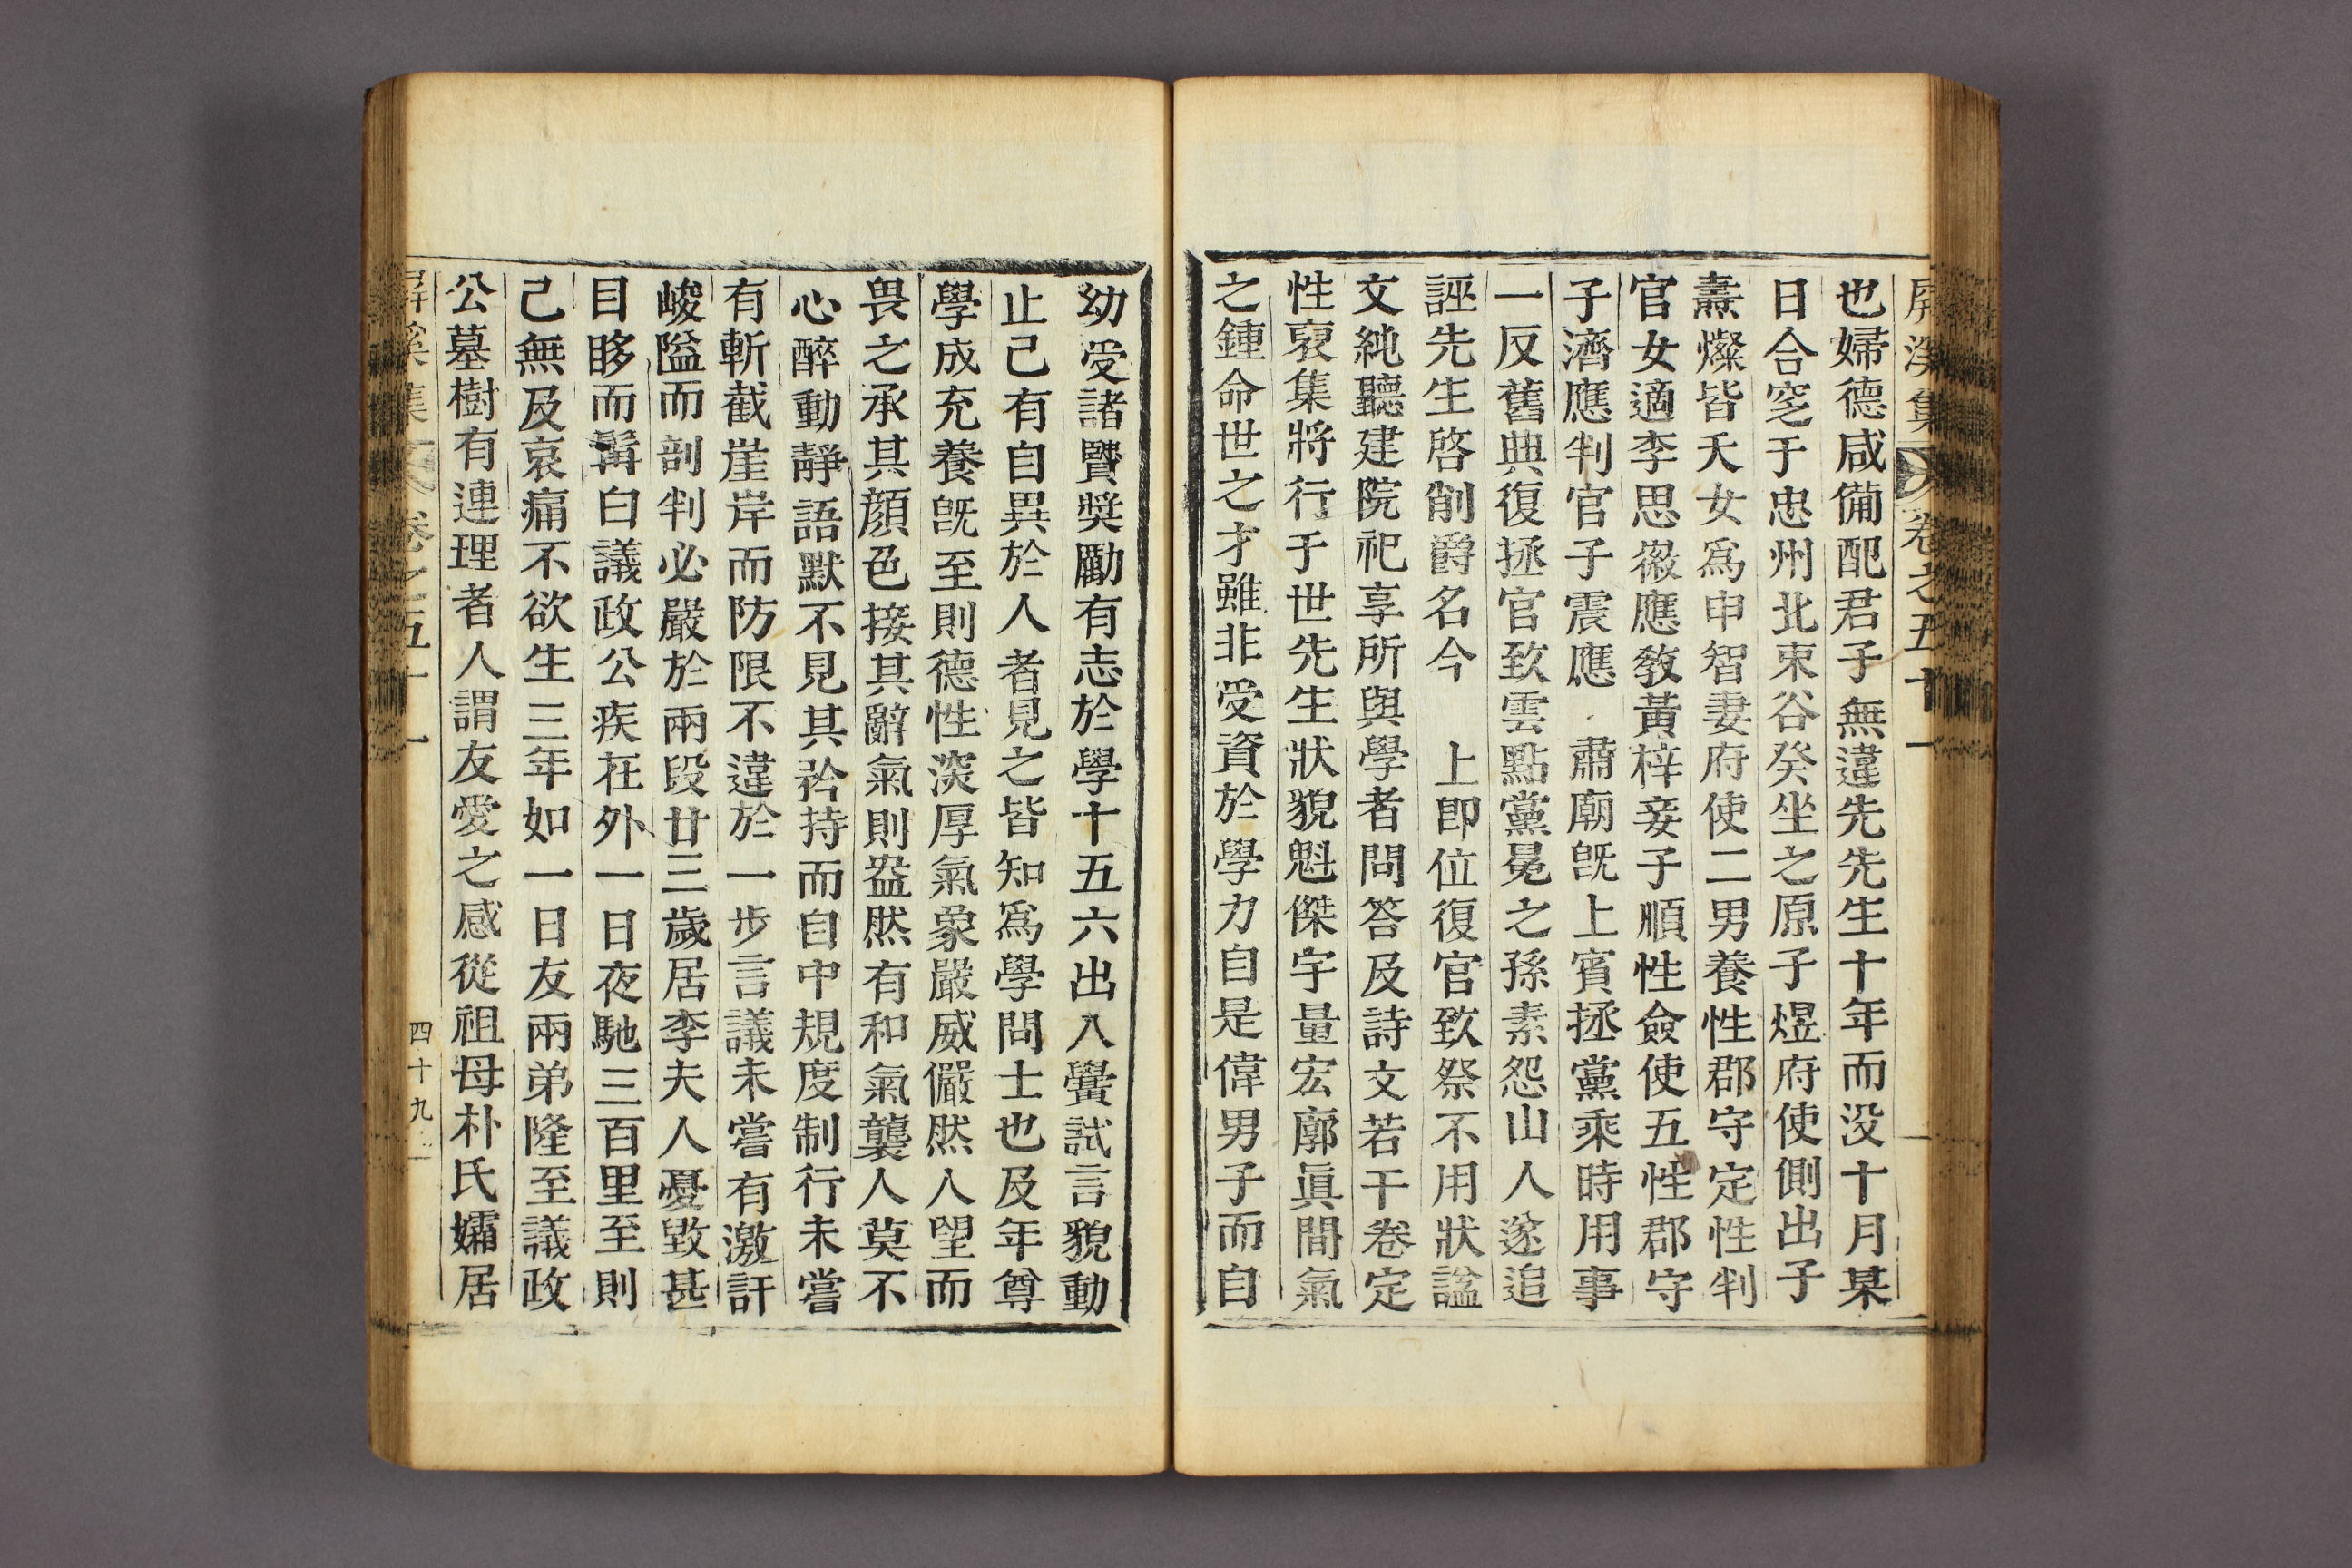 屛溪集 卷之五十一
也婦德咸備配君子無違先先生十年而没十月某
日合窆于忠州北東谷癸坐之原子煜府使側出子
燾燦皆夭女爲申智妻府使二男養性郡守定性判
官女適李思徽應敎黃梓妾子順性僉使五性郡守
子濟應判官子震應 肅廟旣上賓拯黨乘時用事
一反舊典復拯官致雲點黨冕之孫素怨山人遂追
誣先生啓削爵名今 上卽位復官致祭不用狀諡
文純聽建院祀享所與學者問答及詩文若干卷定
性裒集將行于世先生狀貌魁傑宇量宏廓眞間氣
之鍾命世之才雖非受資於學力自是偉男子而自
幼受諸賢奬勵有志於學十五六出入黌試言貌動
止已有自異於人者見之皆知爲學問士也及年尊
學成充養旣至則德性深厚氣象嚴威儼然人望而
畏之承其顏色接其辭氣則盎然有和氣襲人莫不
心醉動靜語默不見其矜持而自中規度制行未嘗
有斬截崖岸而防限不違於一步言議未嘗有激訐
峻隘而剖判必嚴於兩段廿三歲居李夫人憂毀甚
目眵而髯白議政公疾在外一日夜馳三百里至則
已無及哀痛不欲生三年如一日友兩弟隆至議政
公墓樹有連理者人謂友愛之感從祖母朴氏孀居
屛溪集 卷之五十一 四十九